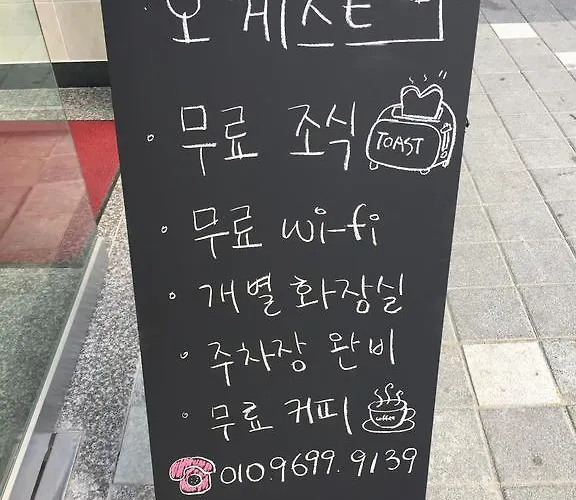 무료 조식 TOAST
무료 wi-fi
개별 화장실
주차장 완비
무료 커피 coffee
010.9699.9139